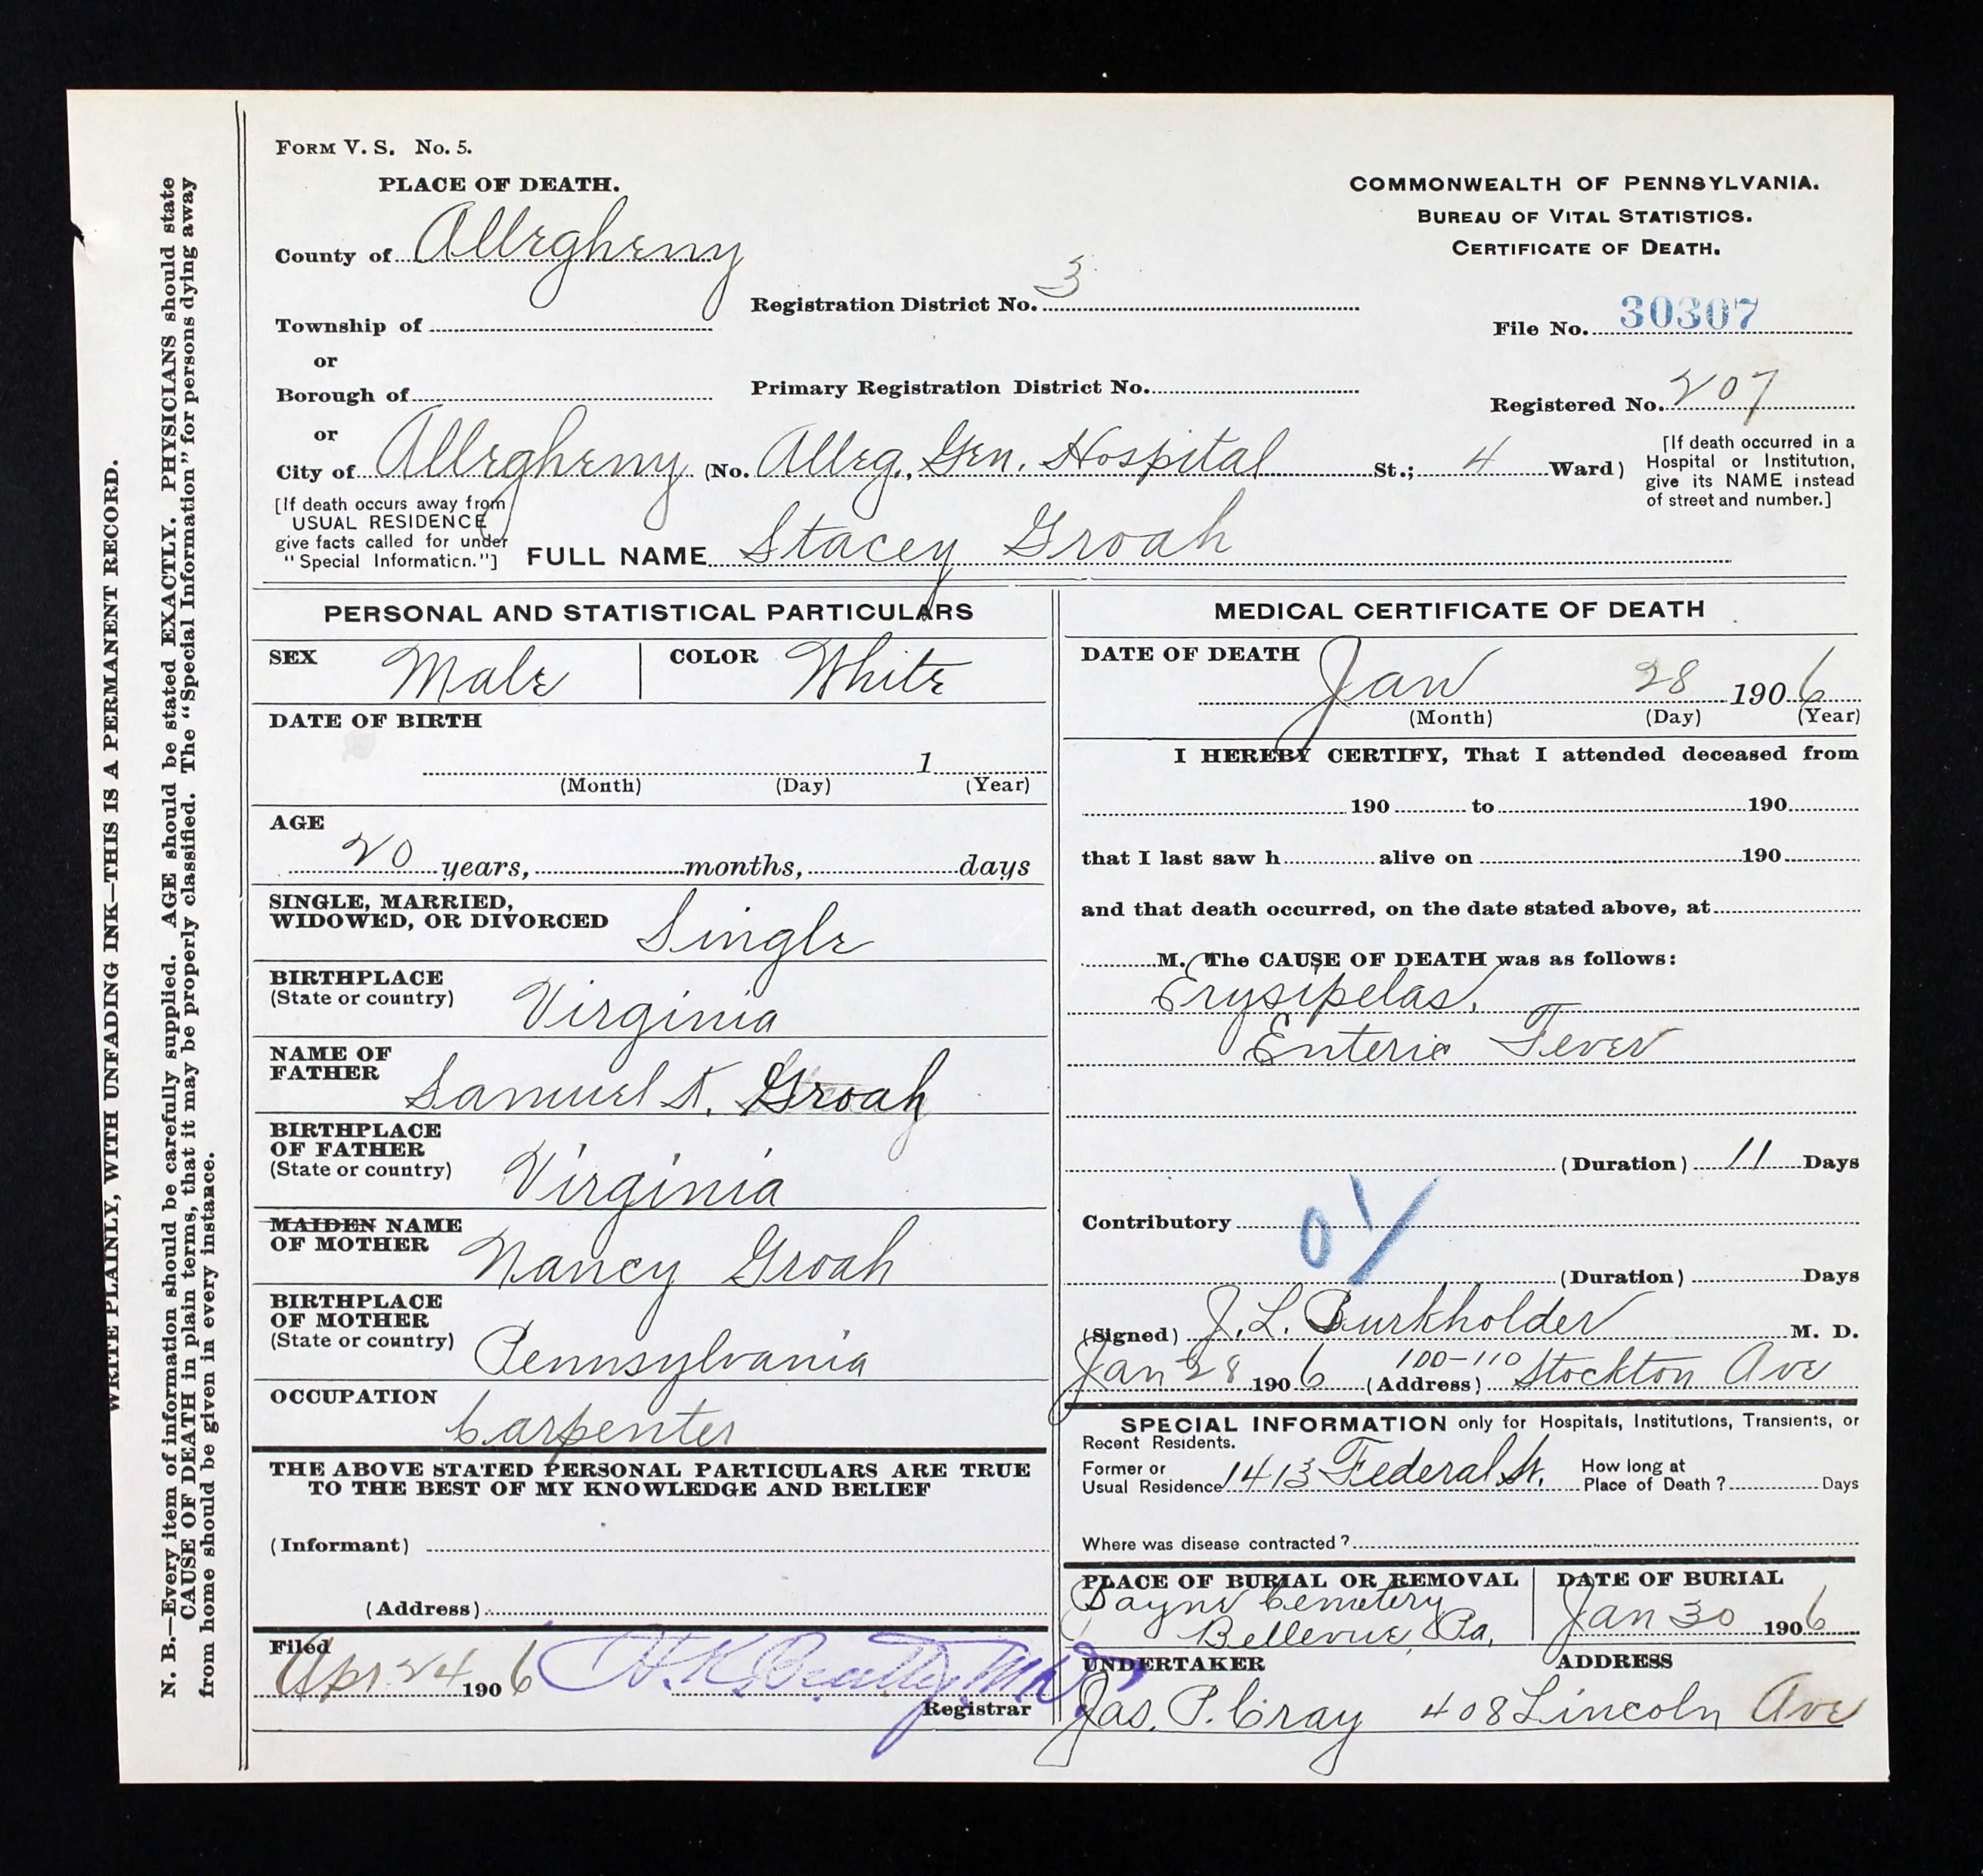 FORM V. S. No. 5.
PLACE OF DEATH.
County of Allegheny
Township of
or
Borough of
or
City of Allegheny (No. Alleg. Gen. Hospital St.; 4 Ward)
[If death occurs away from
USUAL RESIDENCE
give facts called for under
"Special Information."]
FULL NAME Stacey Groah
Registration District No. 3
Primary Registration District No.
COMMONWEALTH OF PENNSYLVANIA.
BUREAU OF VITAL STATISTICS.
CERTIFICATE OF DEATH.
File No. 30307
Registered No. 207
[If death occurred in a
Hospital or Institution,
give its NAME instead
of street and number.]
PERSONAL AND STATISTICAL PARTICULARS
SEX Male COLOR White
DATE OF BIRTH
1
(Month) (Day) (Year)
AGE
20 years, months, days
SINGLE, MARRIED,
WIDOWED, OR DIVORCED Single
BIRTHPLACE
(State or country) Virginia
NAME OF
FATHER Samuel K. Groah
BIRTHPLACE
OF FATHER
(State or country) Virginia
MAIDEN NAME
OF MOTHER Nancy Groah
BIRTHPLACE
OF MOTHER
(State or country) Pennsylvania
OCCUPATION
Carpenter
THE ABOVE STATED PERSONAL PARTICULARS ARE TRUE
TO THE BEST OF MY KNOWLEDGE AND BELIEF
(Informant)
(Address)
Filed
Apr 24 1906 H.K. Beatty, M.D.
Registrar
MEDICAL CERTIFICATE OF DEATH
DATE OF DEATH
Jan 28 1906
(Month) (Day) (Year)
I HEREBY CERTIFY, That I attended deceased from
190 to 190
that I last saw h alive on 190
and that death occurred, on the date stated above, at
M. The CAUSE OF DEATH was as follows:
Erysipelas,
Enteric Fever
(Duration) 11 Days
Contributory
01
(Duration) Days
(Signed) J. L. Burkholder M. D.
Jan 28 1906 (Address) 100-110 Stockton Ave
SPECIAL INFORMATION only for Hospitals, Institutions, Transients, or
Recent Residents.
Former or
Usual Residence 1413 Federal St.
How long at
Place of Death? Days
Where was disease contracted?
PLACE OF BURIAL OR REMOVAL
Bayne Cemetery
Bellevue, Pa.
DATE OF BURIAL
Jan 30 1906
UNDERTAKER ADDRESS
Jas. P. Cray 408 Lincoln Ave
WRITE PLAINLY, WITH UNFADING INK—THIS IS A PERMANENT RECORD.
N. B.—Every item of information should be carefully supplied. AGE should be stated EXACTLY. PHYSICIANS should state
CAUSE OF DEATH in plain terms, that it may be properly classified. The "Special Information" for persons dying away
from home should be given in every instance.